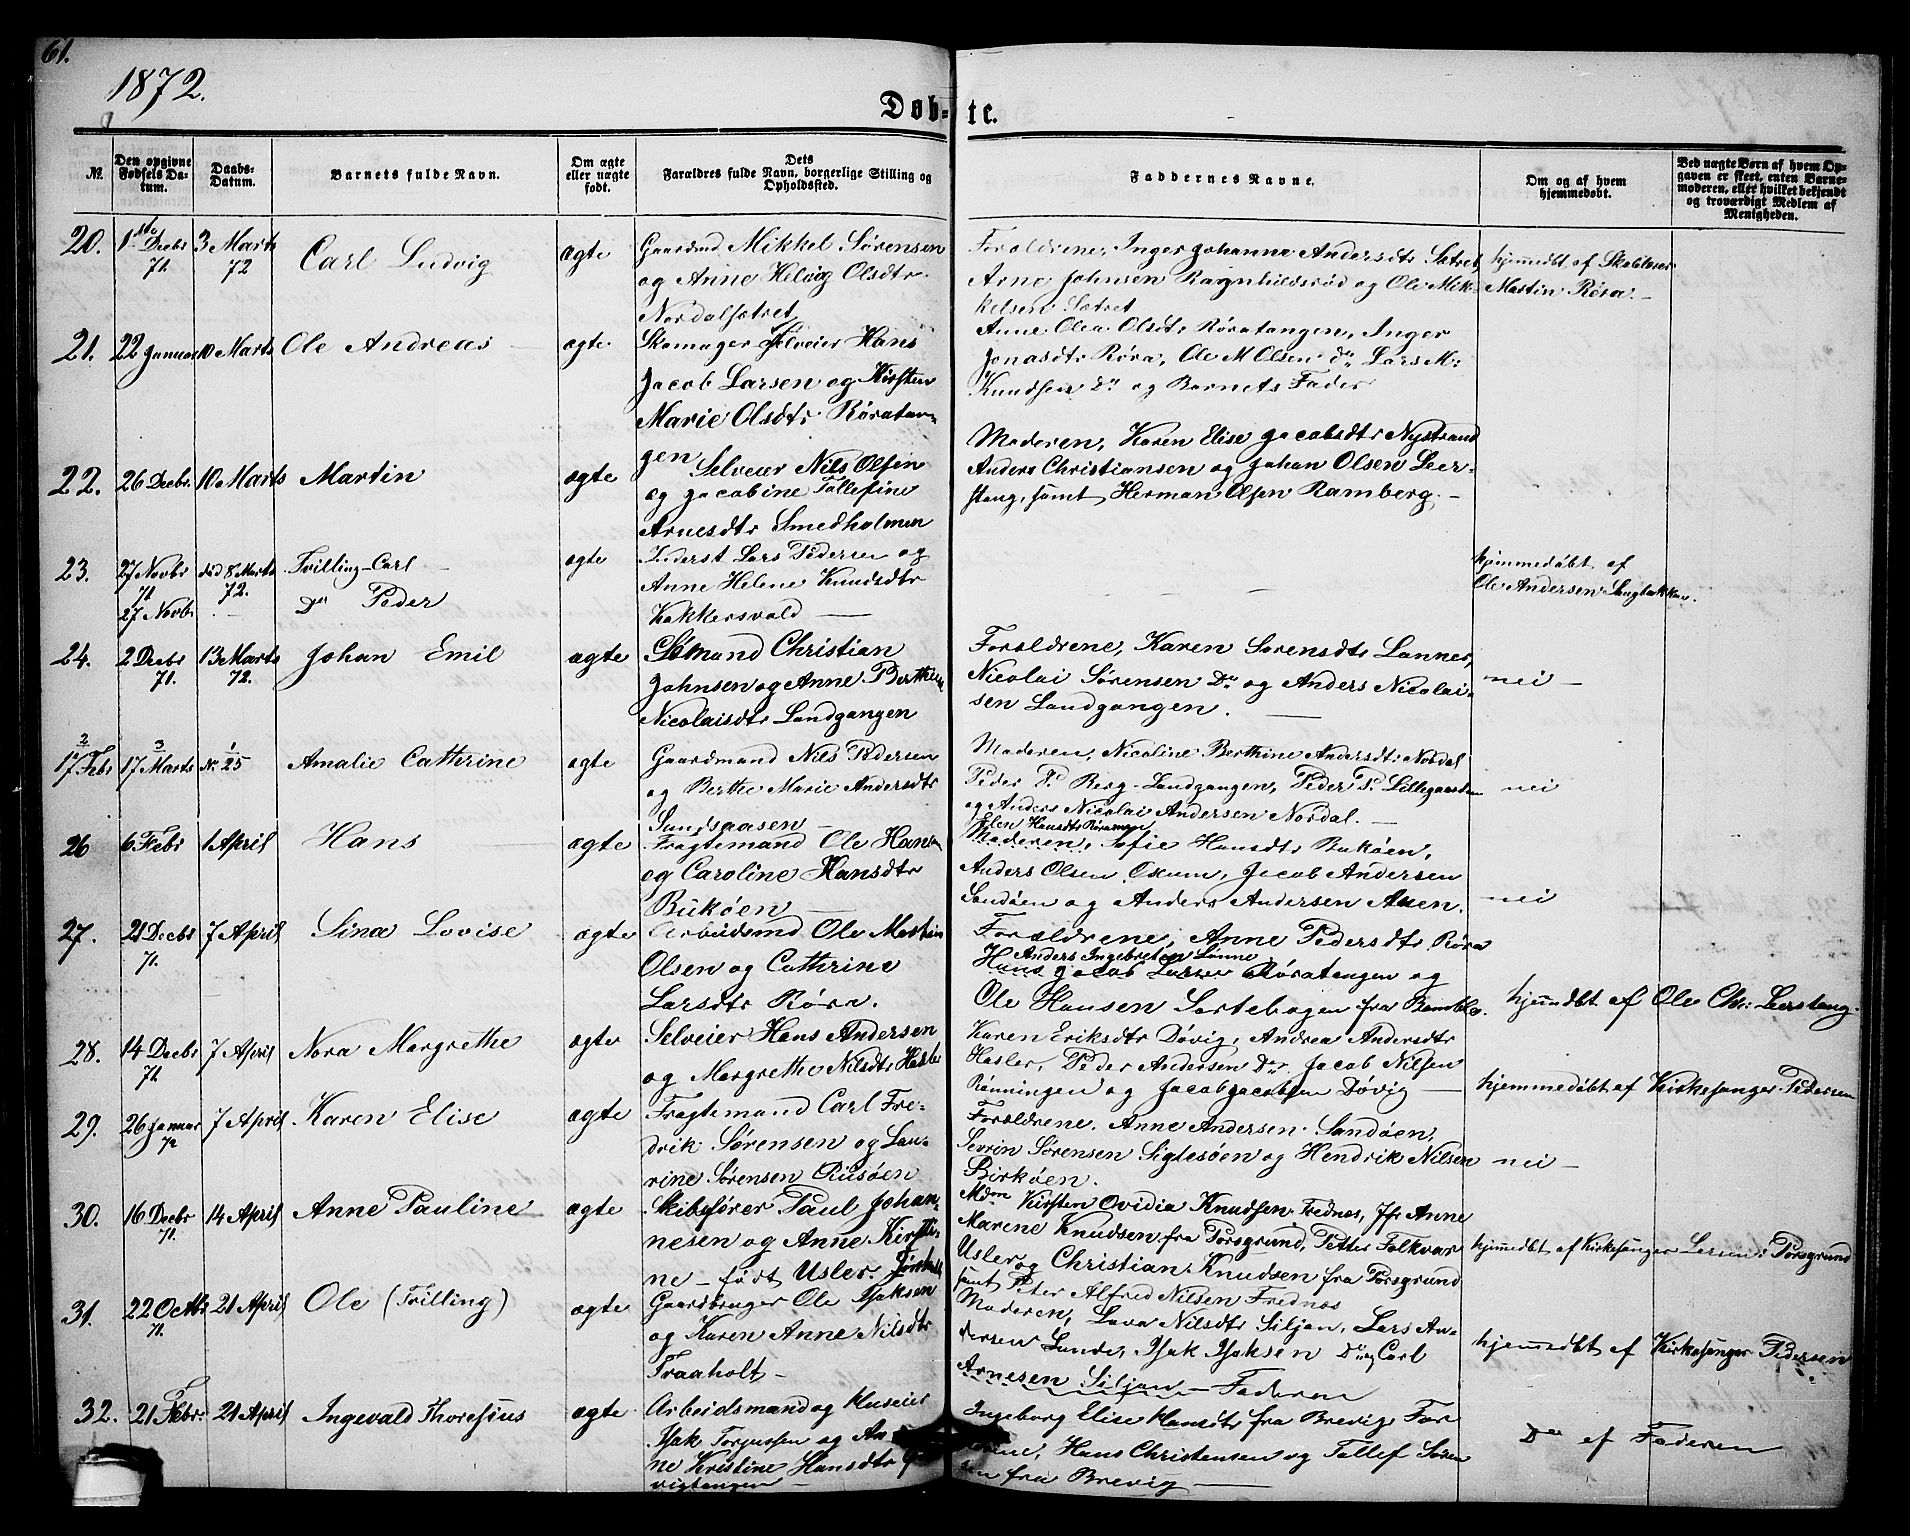 61.
1872.
Døb- te.
№.
Den opgivne Fødsels Datum.
Daabs-Datum.
Barnets fulde Navn.
Om ægte eller uægte født.
Dets Forældres fulde Navn, borgerlige Stilling og Opholdssted.
Faddernes Navne.
Om og af hvem hjemmedøbt.
Ved uægte Børn af hvem Opgaven er skeet, enten Barnemoderen, eller hvilket bekjendt og troværdigt Medlem af Menigheden.
20. 1ste Decbr 71. 3 Marts 72 Carl Ludvig ægte
Gaardmd Mikkel Sørensen
og Anne Helvig Olsdtr
Nordalsætret
Forældrene, Inger Johanna Andersdtr Sætret,
Arne Johnsen Ragnhildsrød og Ole Mik-
kelsen Sætret
hjemmedbt af Skolelærer
Martin Røra.
21. 22 Januar 10 Marts Ole Andreas ægte
Skomager Selveier Hans
Jacob Larsen og Kirsten
Marie Olsdtr Røratan-
gen
Anne Olea Olsdtr Røratangen, Inger
Jonasdtr Røra, Ole M Olsen do, Lars M.
Knudsen Do og Barnets Fader
22. 26 Decbr 10 Marts Martin ægte
Selveier Nils Olsen
og Jacobine Tollefine
Arnesdtr Smedholmen
Moderen, Karen Elise Jacobsdtr Nystrand
Anders Christiansen og Johan Olsen Leer-
stang, samt Herman Olsen Ramberg.
23. 27 Novbr 71 død 8 Marts 72. Tvilling-Carl ægte
27 Novb. Do Peder
Inderst Lars Pedersen og
Anne Helene Knudsdtr
Kokkersvold
hjemmedøbt af
Ole Andersen Langbakken.
24. 2 Decbr 71. 13 Marts 72. Johan Emil ægte
Gbmand Christian
Johnsen og Anne Berthine
Nicolaisdtr Landgangen
Forældrene, Karen Sørensdtr Lønnes,
Nicolai Sørensen Do og Anders Nicolai-
sen Landgangen.
nei
17 Febr 17 Marts Nr 25 Amalie Cathrine ægte
Gaardmand Nils Pedersen
og Berthe Marie Andersdtr
Sundsaasen
Moderen, Nicoline Berthine Andersdtr Nordal
Peder P. Berg-Landgangen, Peder P. Lillegaarden
og Anders Nicolai Andersen Nordal.
nei
26 6 Febr 1 April Hans ægte
Fragtemand Ole Hansen
og Caroline Hansdtr
Bukøen
Elen Hansdtr
Moderen, Sofie Hansdtr Bukøen,
Anders Olsen Oxum, Jacob Andersen
Sandøen og Anders Andersen Auen.
nei
27. 21 Decbr 71. 7 April Sina Lovise ægte
Arbeidsmd Ole Martin
Olsen og Cathrine
Larsdtr Røra.
Forældrene, Anne Pedersdtr Røra
Anders Ingebretsen Lønne
Hans Jacob Larsen Røratangen og
Ole Hansen Sortebogen fra Bamble.
hjemmdbt af Ole Chr: Leerstang.
28. 14 Decbr 71. 7 April Nora Margrethe ægte
Selveier Hans Andersen
og Margrethe Nilsdtr Hasler
Karen Eriksdtr Døvig, Andrea Andersdtr
Hasler, Peder Andersen Do. Jacob Nilsen
Rønningen og Jacob Jacobsen Døvig
hjemmedøbt af Kirkesanger Pedersen
29. 26 Januar 72 7 April Karen Elise ægte
Fragtemand Carl Fre-
drik Sørensen og Lau-
rine Sørensen Risøen
Forældrene, Anne Andersen Sandøen,
Sevrin Sørensen Sigtesøen og Hendrik Nilsen
Birkøen.
nei
30. 16 Decbr 71. 14 April Anne Pauline ægte
Skibsfører Paul Johan-
nesen og Anne Kirsti-
ne født Usler.
Mdm Kirsten Ovidia Knudsen Frednæs, Jfr Anne
Marene Knudsen fra Porsgrund, Petter Folkvar
Usler og Christian Knudsen fra Porsgrund
samt Peter Alfred Nilsen Frednæs
hjemmedbt af Kirkesanger Larsen i Porsgrund
31. 22 Octbr 71. 21 April Ole (Tvilling) ægte
Gaardbruger Ole Isaksen
og Karen Anne Nilsdtr
Traaholt
Moderen, Lava Nilsdtr Siljan, Lars An-
dersen Lunde, Isak Isaksen Do og Carl
Arnesen Siljan Faderen
hjemmedøbt af Kirkesanger Pedersen
32. 21 Febr. 21 April Ingevald Thoresius ægte
Arbeidsmand og Huseier
Isak Torjussen og An-
ne Kristine Hansdtr
vigtangen
Ingeborg Elise Hansdtr fra Brevig, For-
Hans Christensen og Tollef Søren
sen fra Brevig
Do af Faderen